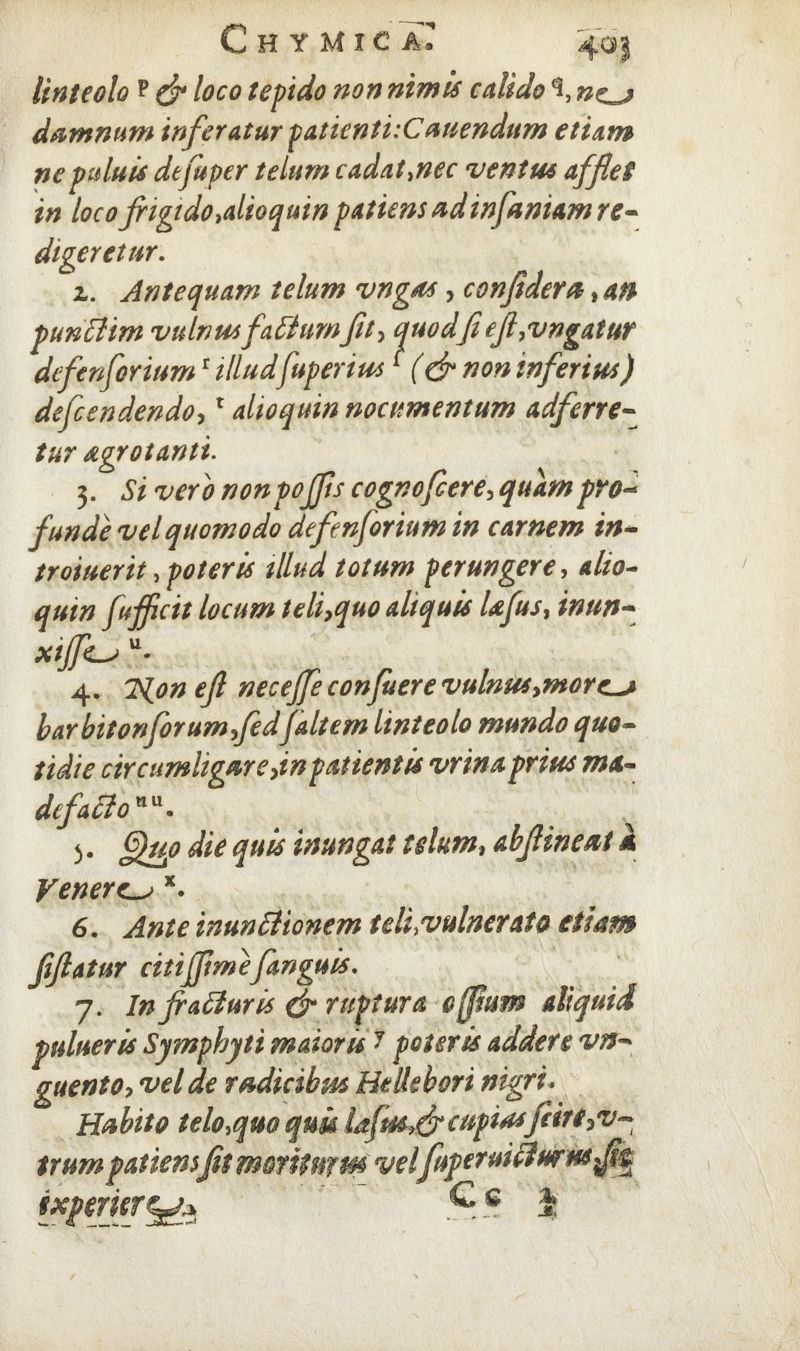 CHYMICA. 403
linteolo ᵖ & loco tepido non nimis calido ᑫ, ne
damnum inferatur patienti: Cauendum etiam
ne puluis deſuper telum cadat, nec ventus afflet
in loco frigido, alioquin patiens ad inſaniam re-
digeretur.
2. Antequam telum vngas, conſidera, an
punctim vulnus factum ſit, quod ſi eſt, vngatur
defenſorium ʳ illud ſuperius ˢ (& non inferius)
deſcendendo, ᵗ alioquin nocumentum adferre-
tur ægrotanti.
3. Si verò non poſſis cognoſcere, quàm pro-
fundè vel quomodo defenſorium in carnem in-
troiuerit, poteris illud totum perungere, alio-
quin ſufficit locum teli, quo aliquis læſus, inun-
xiſſe ᵘ.
4. Non eſt neceſſe conſuere vulnus, more
barbitonſorum, ſed ſaltem linteolo mundo quo-
tidie circumligare, in patientis vrina prius ma-
defacto ᵘᵘ.
5. Quo die quis inungat telum, abſtineat à
Venere ˣ.
6. Ante inunctionem teli, vulnerato etiam
ſiſtatur citiſſimè ſanguis.
7. In fracturis & ruptura oſſium aliquid
pulueris Symphyti maioris ʸ poteris addere vn-
guento, vel de radicibus Hellebori nigri.
Habito telo, quo quis læſus, & cupias ſcire, v-
trum patiens ſit moriturus vel ſuperuicturus, ſic
experiere.
Cc 2